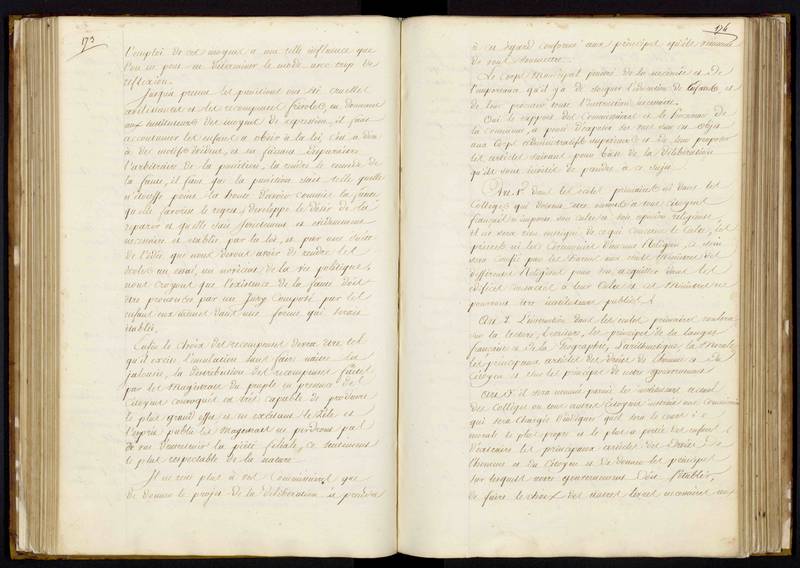 173
l'emploi de ces moyens a une telle influence que
l'on ne peut en déterminer le mode avec trop de
reflexion.
Jusqu'à present les punitions ont été cruelles
avilissantes et les recompenses frivoles, en donnant
aux instituteurs des moyens de repression, il faut
accoutumer les enfans a obéir à la loi, c'est à dire
à des motifs
l'arbitraire de la punition, la rendre la
la faute, il faut que la punition soit telle quelle
n'étouffe point la honte d'avoir commis la faute
qu'elle favorise le regret, developpe le désir de la
reparer et quelle soit
necessaire et établie par la loi, et par une suite
de l'idée que nous devons avoir de rendre les
écoles un essai, un noviciat de la vie politique,
nous croyons que l'existence de la faute doit
être prononcée par un Jury composé par les
enfans eux mêmes dans une forme qui serait
établie.
Enfin le choix des recompenses devra etre tel
qu'il excite l'emulation sans faire naitre la
jalousie, la distribution des recompenses faites
par les Magistrats du peuple en presence des
Citoyens est très capable de produire
le plus grand effet et en excitant le zèle et
l'esprit public les Magistrats ne perdront pas
de vue d'entretenir la piété filiale, ce sentiment
le plus respectable de la nature.
Il ne reste plus à vos Commissaires que
de donner le projet de la délibération à prendre
174
à cet égard conforme aux principes qu'ils viennent
de vous soumettre.
Le Corps Municipal pénétré de la necessité et de
l'importance qu'il y a de soigner l'éducation des enfans et
de leur procurer toute l'instruction necessaire.
Oui le rapport des Commissaires et le Procureur de
la Commune, a pensé d'exposer ses vues sur cet objet
aux Corps administratifs superieurs et de leur proposer
les articles suivans pour base de la délibération
qu'ils sont invités de prendre à ce sujet.
Art. 1er dans les ecoles primaires ni dans les
Colleges qui doivent être ouverts à tous citoyens
français n'importe son culte et son opinion religieuse,
il ne sera rien enseigné de ce qui concerne le Culte, les
préceptes ni les Ceremonies d'aucune Religion, ce soin
sera confié par les Parens aux seuls Ministres des
differentes Religions pour s'en acquitter dans les
édifices consacrés à leur Culte et ces Ministres ne
pourront être instituteurs publics.
Art 2. L'instruction dans les ecoles primaires roulera
sur la lecture, l'ecriture, les principes de la langue
française et de la Geographie, l'arithmetique, la Morale
les principaux articles des Droits de l'homme et du
Citoyen et sur les principes de notre gouvernement
Art 3. il sera nommé parmi les instituteurs actuels
des Colleges ou tous autres Citoyens instruits une Commission
qui sera chargée d'indiquer quel sera le cours de
morale le plus propre et le plus a portée des enfans
d'extraire les principaux articles des Droits de
l'homme et du Citoyen et de donner les principes
sur lesquels notre gouvernement doit s'établir,
de faire le choix des autres livres necessaires aux